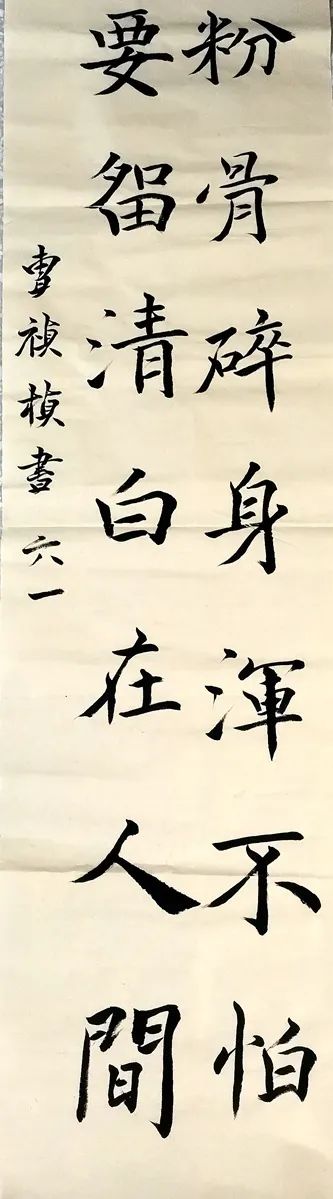 粉骨碎身渾不怕
要留清白在人間
曹禎楨書 六一